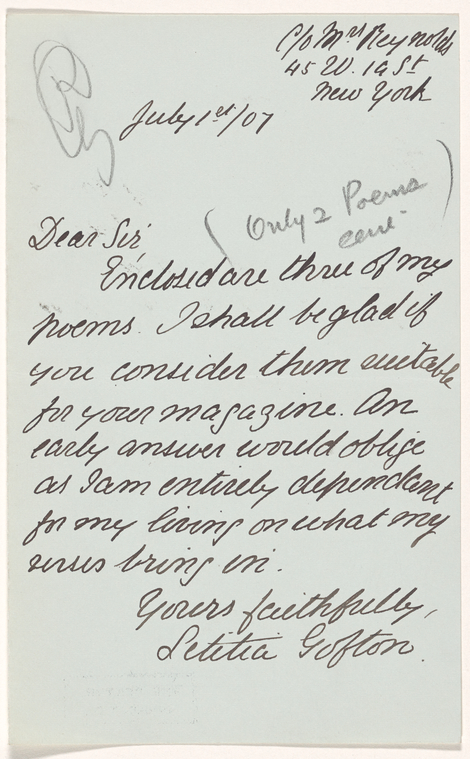 c/o Mrs Reynolds
45 W. 19 St
New York
July 1st/07
(Only 2 Poems
sent)
Dear Sir,
Enclosed are three of my
poems. I shall be glad if
you consider them suitable
for your magazine. An
early answer would oblige
as I am entirely dependant
for my living on what my
verses bring in.
Yours faithfully,
Letitia Gofton.